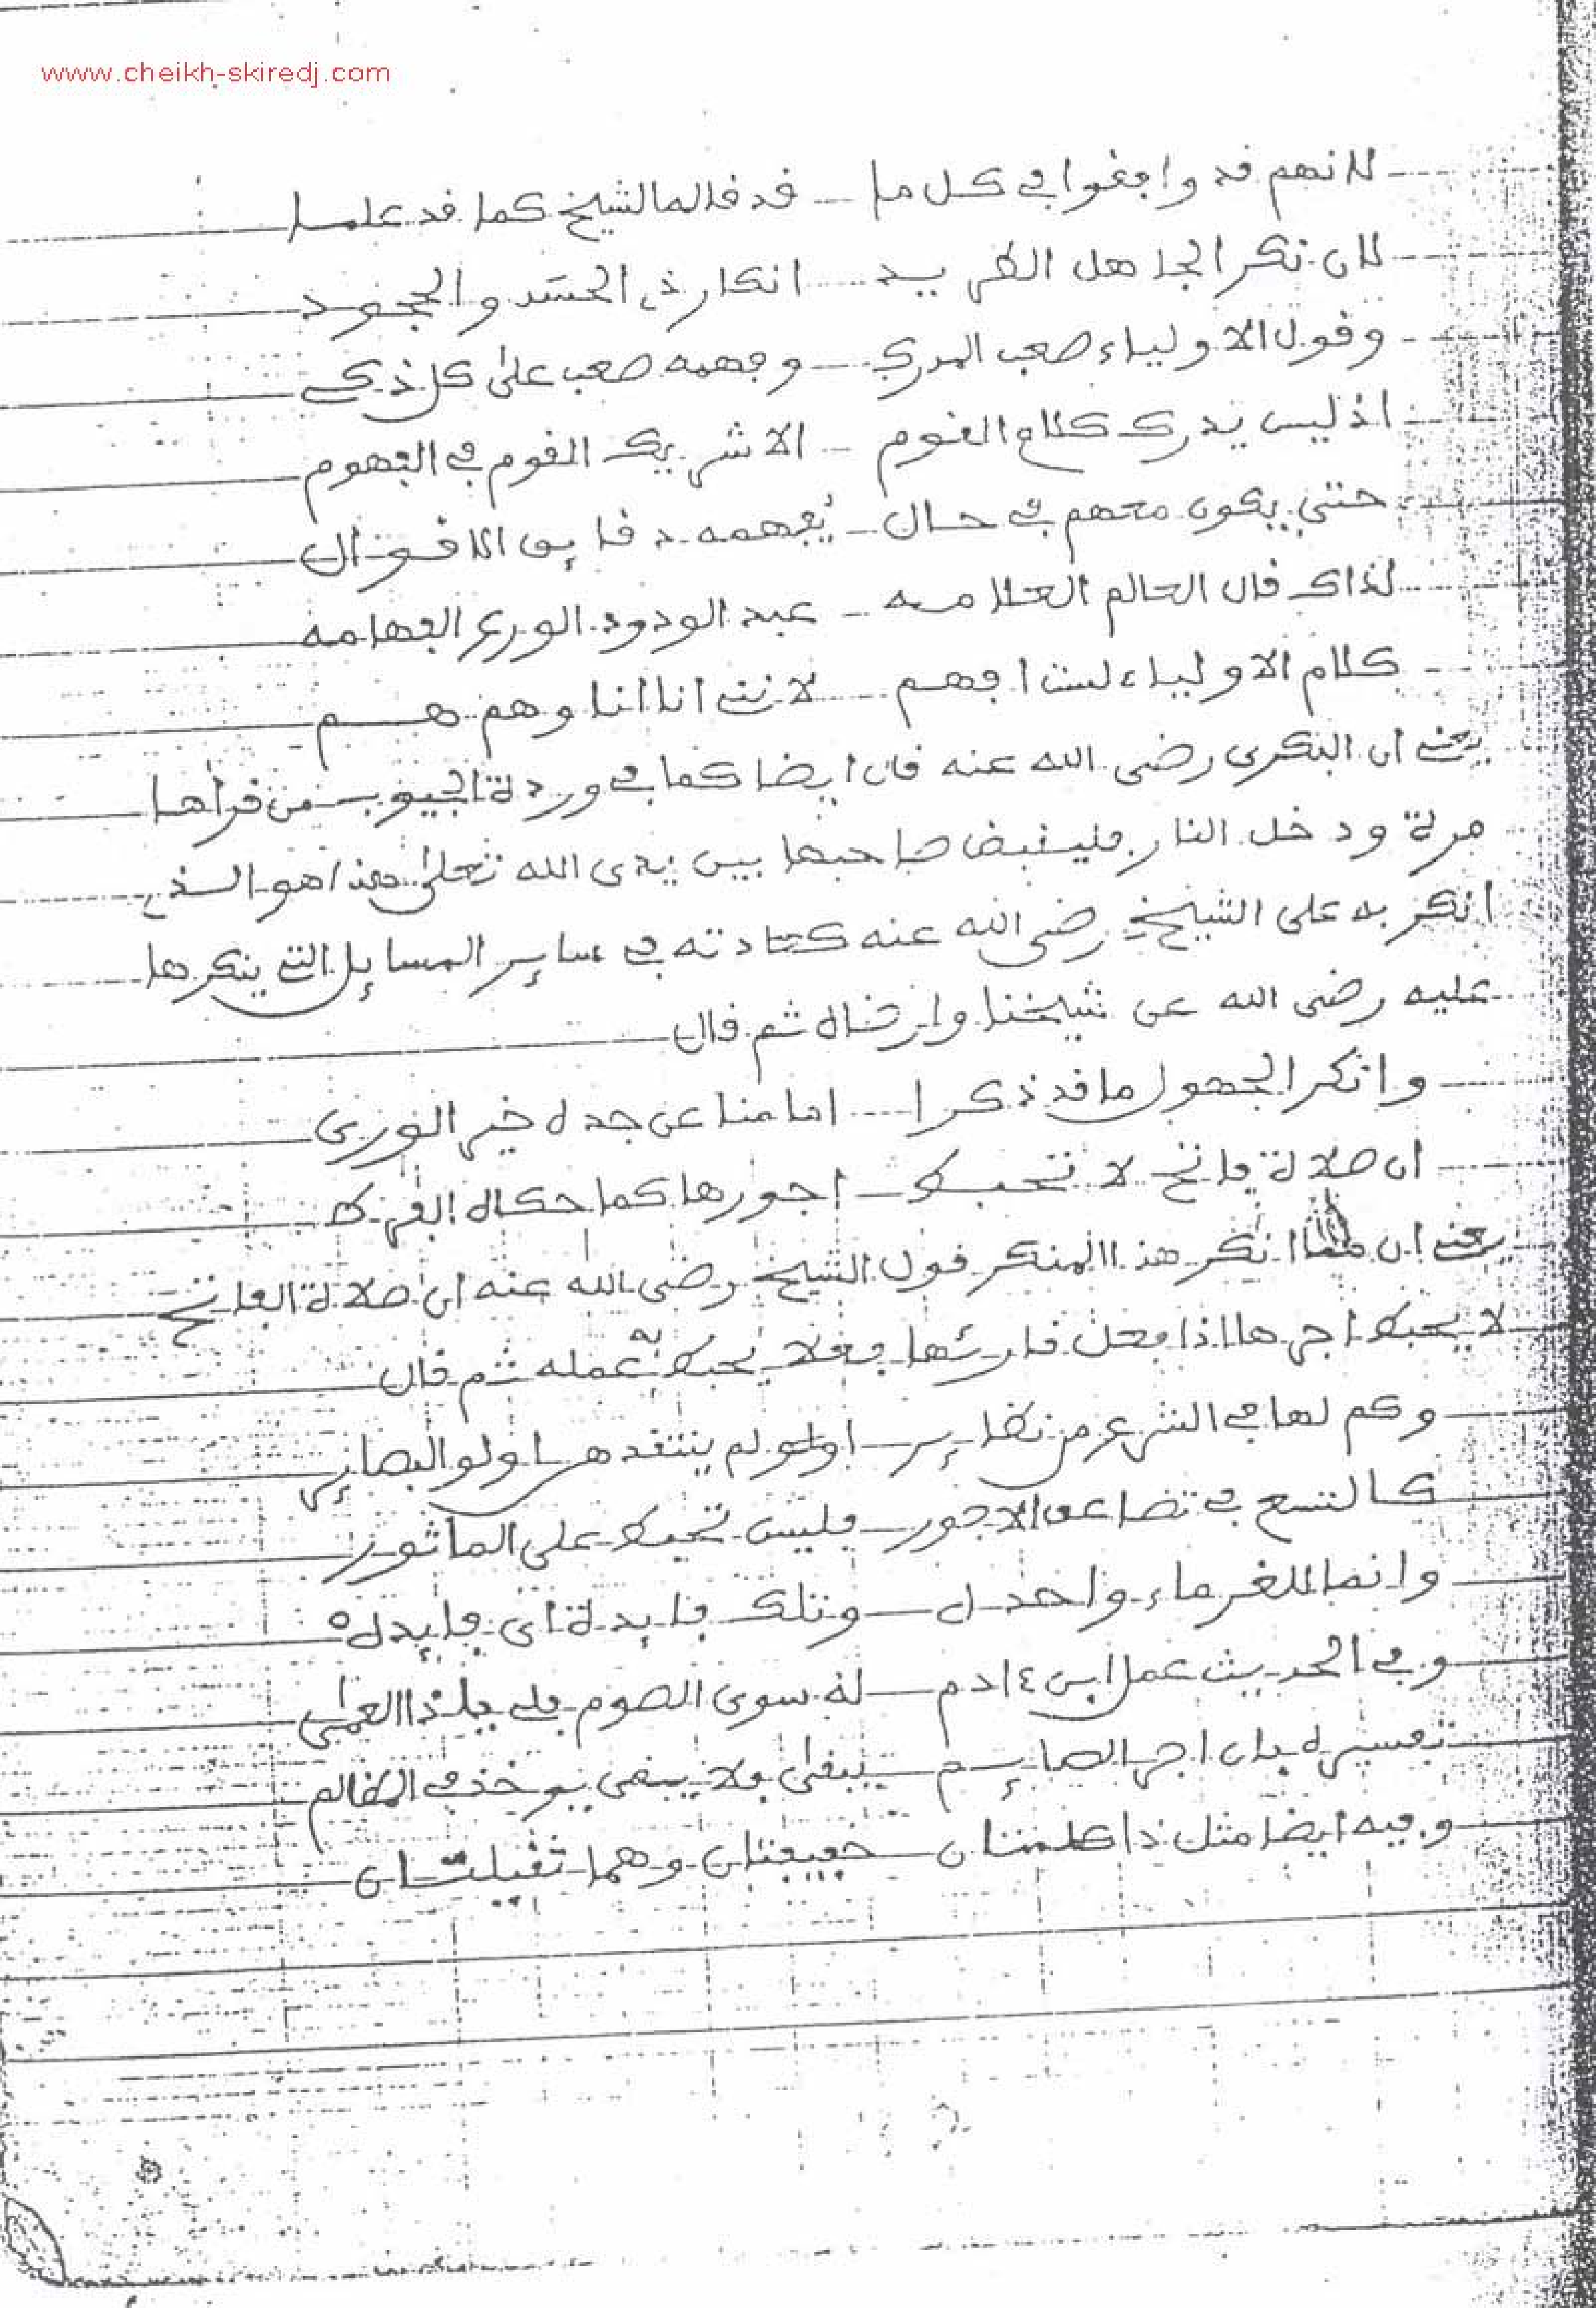 www.cheikh-skiredj.com
لانهم قد وافقوا في كل ما قد قاله الشيخ كما قد علما
لان نكر الجاهل الطريد انكار ذي الحسد والجحود
وقول الاولياء صعب المدرك وفهمه صعب على كل ذكي
اذ ليس يدرك كلام القوم الا شريك القوم في الفهوم
حتى يكون معهم في حال يفهمه دقايق الاقوال
لذاك قال العالم العلامه عبد الودود الورع الفهامه
كلام الاولياء لست افهم لانني انا انا وهم هم
يعني ان البكري رضى الله عنه قال ايضا كما في وردة الجيوب من قراها
مرة ودخل النار فليقبض صاحبها بين يدى الله تعلى هذا هو الذي
انكر به على الشيخ رضى الله عنه كعادته في ساير المسايل التي ينكرها
عليه رضى الله عن شيخنا وارضاه ثم قال
وانكر الجهول ما قد ذكرا امامنا عن جده خير الورى
ان صلاة فاتح لا تحبط اجورها كما حكاه الفرط
يعني ان انكر هذا المنكر قول الشيخ رضى الله عنه ان صلاة الفاتح
لا يحبط اجرها اذا فعل قارئها فعلا يحبط به عمله ثم قال
وكم لها في الشرع من نظاير لم ينتقدها اولو البصاير
كالتسع في تضاعف الاجور فليس تحبط على الماثور
وانما للغرماء واحده وتلك فايدة اى فايده
وفي الحديث عمل ابن ءادم له سوى الصوم فلي يا ذا العمى
تفسيره بان اجر الصايم يبقى ولا يوخذ في المظالم
وفيه ايضا مثل ذا كلمتان خفيفتان وهما ثقيلتان